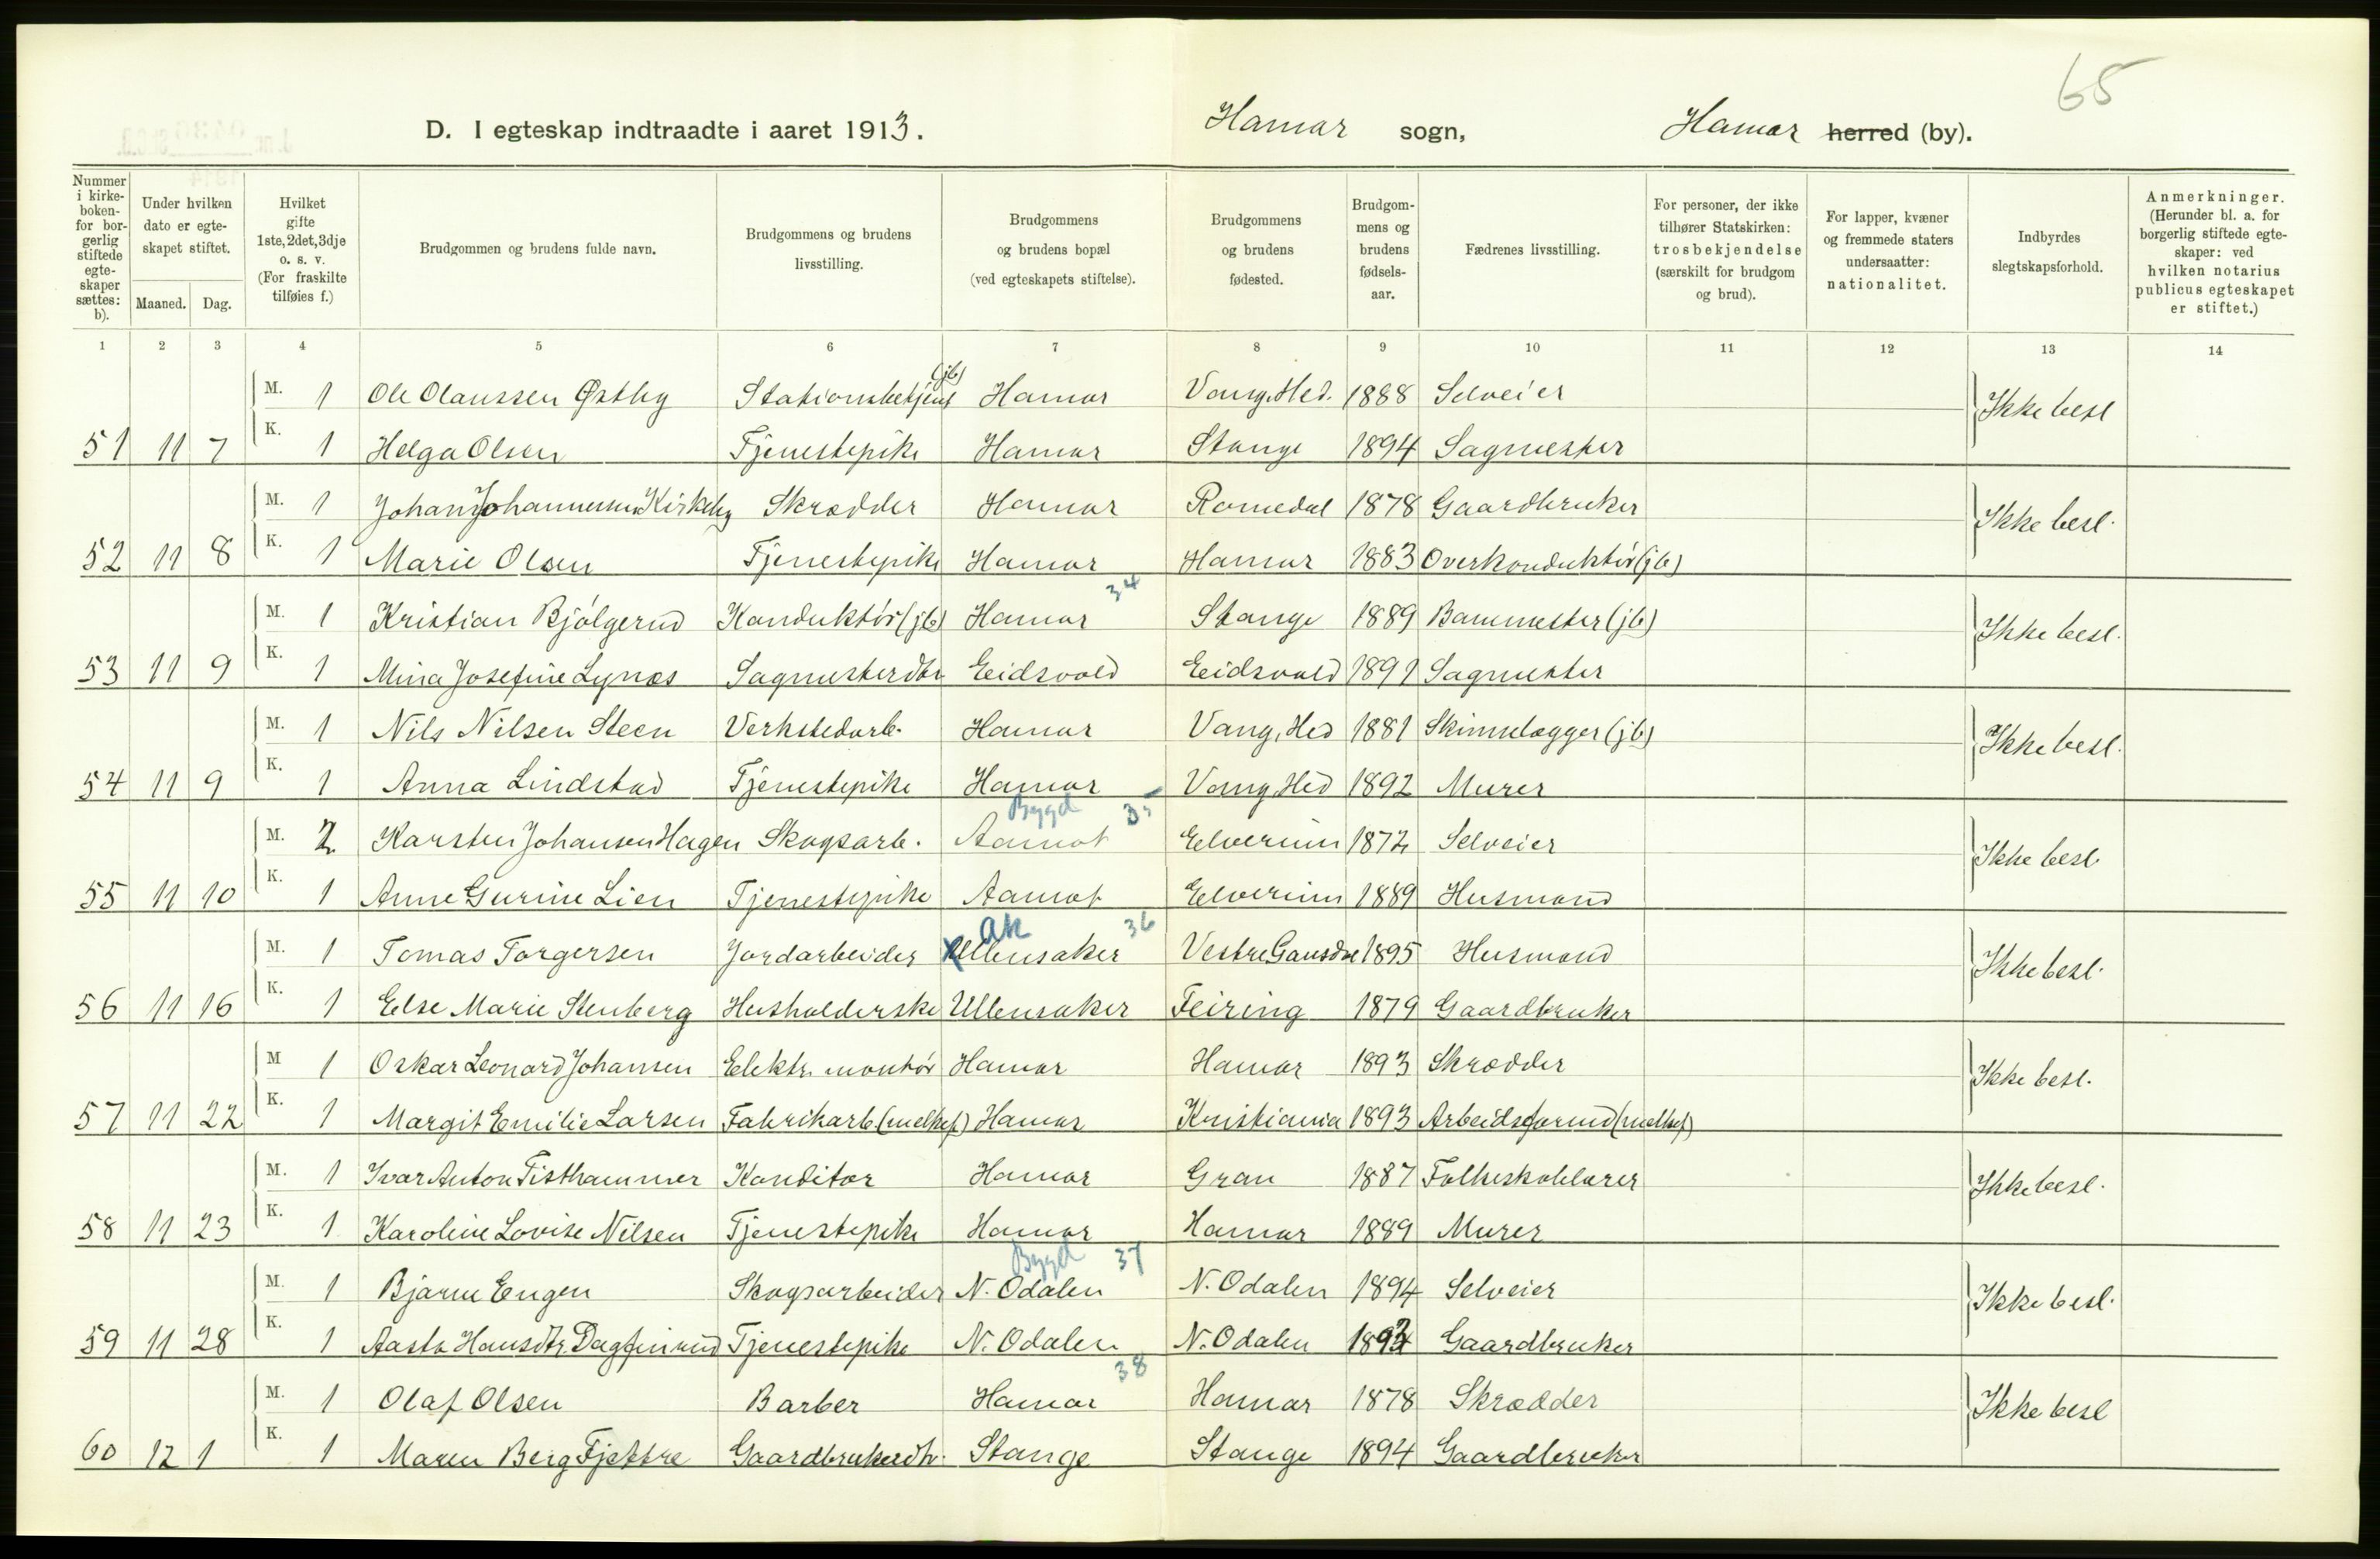 65
D. I egteskap indtraadte i aaret 1913. Hamar sogn, Hamar herred (by).
Nummer i kirke-boken- for bor-gerlig stiftede egte-skaper sættes: b).
Under hvilken dato er egte-skapet stiftet.
Maaned. Dag.
Hvilket gifte 1ste, 2det, 3dje o. s. v. (For fraskilte tilføies f.)
Brudgommen og brudens fulde navn.
Brudgommens og brudens livsstilling.
Brudgommens og brudens bopæl (ved egteskapets stiftelse).
Brudgommens og brudens fødested.
Brudgom-mens og brudens fødsels-aar.
Fædrenes livsstilling.
For personer, der ikke tilhører Statskirken: trosbekjendelse (særskilt for brudgom og brud).
For lapper, kvæner og fremmede staters undersaatter: nationalitet.
Indbyrdes slegtskapsforhold.
Anmerkninger. (Herunder bl. a. for borgerlig stiftede egte-skaper: ved hvilken notarius publicus egteskapet er stiftet.)
1 2 3 4 5 6 7 8 9 10 11 12 13 14
M. 1 Ole Olaussen Østby Stationsbetjent (jb) Hamar Vang, Hed. 1888 Selveier Ikke besl
51 11 7 K. 1 Helga Olsen Tjenestepike Hamar Stange 1894 Sagmester
M. 1 Johan Johannessen Kirkeby Skrædder Hamar Romedal 1878 Gaardbruker Ikke besl.
52 11 8 K. 1 Marie Olsen Tjenestepike Hamar Hamar 1883 Overkonduktör (jb)
34
M. 1 Kristian Bjölgerud Konduktör (jb) Hamar Stange 1889 Banemester (jb) Ikke besl.
53 11 9 K. 1 Mina Josefine Lynæs Sagmesterdtr Eidsvold Eidsvold 1891 Sagmester
M. 1 Nils Nilsen Steen Verkstedarb. Hamar Vang, Hed 1881 Skinnelægger (jb) Ikke besl.
54 11 9 K. 1 Anna Lindstad Tjenestepike Hamar Vang, Hed 1892 Murer
Bygd 35
M. 2 Karsten Johansen Hagen Skogsarb. Aamot Elverum 1872 Selveier Ikke besl.
55 11 10 K. 1 Anne Gurine Lien Tjenestepike Aamot Elverum 1889 Husmand
Ak 36
M. 1 Tomas Torgersen Jordarbeider Ullensaker Vestre Gausdal 1895 Husmand Ikke besl.
56 11 16 K. 1 Else Marie Stenberg Husholderske Ullensaker Feiring 1879 Gaardbruker
M 1 Oskar Leonard Johansen Elektr. montör Hamar Hamar 1893 Skrædder Ikke besl.
57 11 22 K. 1 Margit Emilie Larsen Fabrikarb (melkef) Hamar Kristiania 1893 Arbeidsformd (melkef)
M. 1 Ivar Anton Tisthammer Konditor Hamar Gran 1887 Folkeskolelærer Ikke besl.
58 11 23 K. 1 Karoline Lovise Nilsen Tjenestepike Hamar Hamar 1889 Murer
Bygd 37
M. 1 Bjarne Engen Skogsarbeider N. Odalen N. Odalen 1894 Selveier Ikke besl.
59 11 28 K. 1 Aasta Hansdtr. Dagfinrud Tjenestepike N. Odalen N. Odalen 1893 Gaardbruker
38
M. 1 Olaf Olsen Barber Hamar Hamar 1878 Skrædder Ikke besl
60 12 1 K. 1 Maren Berg Fjettre Gaardbrukerdtr. Stange Stange 1894 Gaardbruker